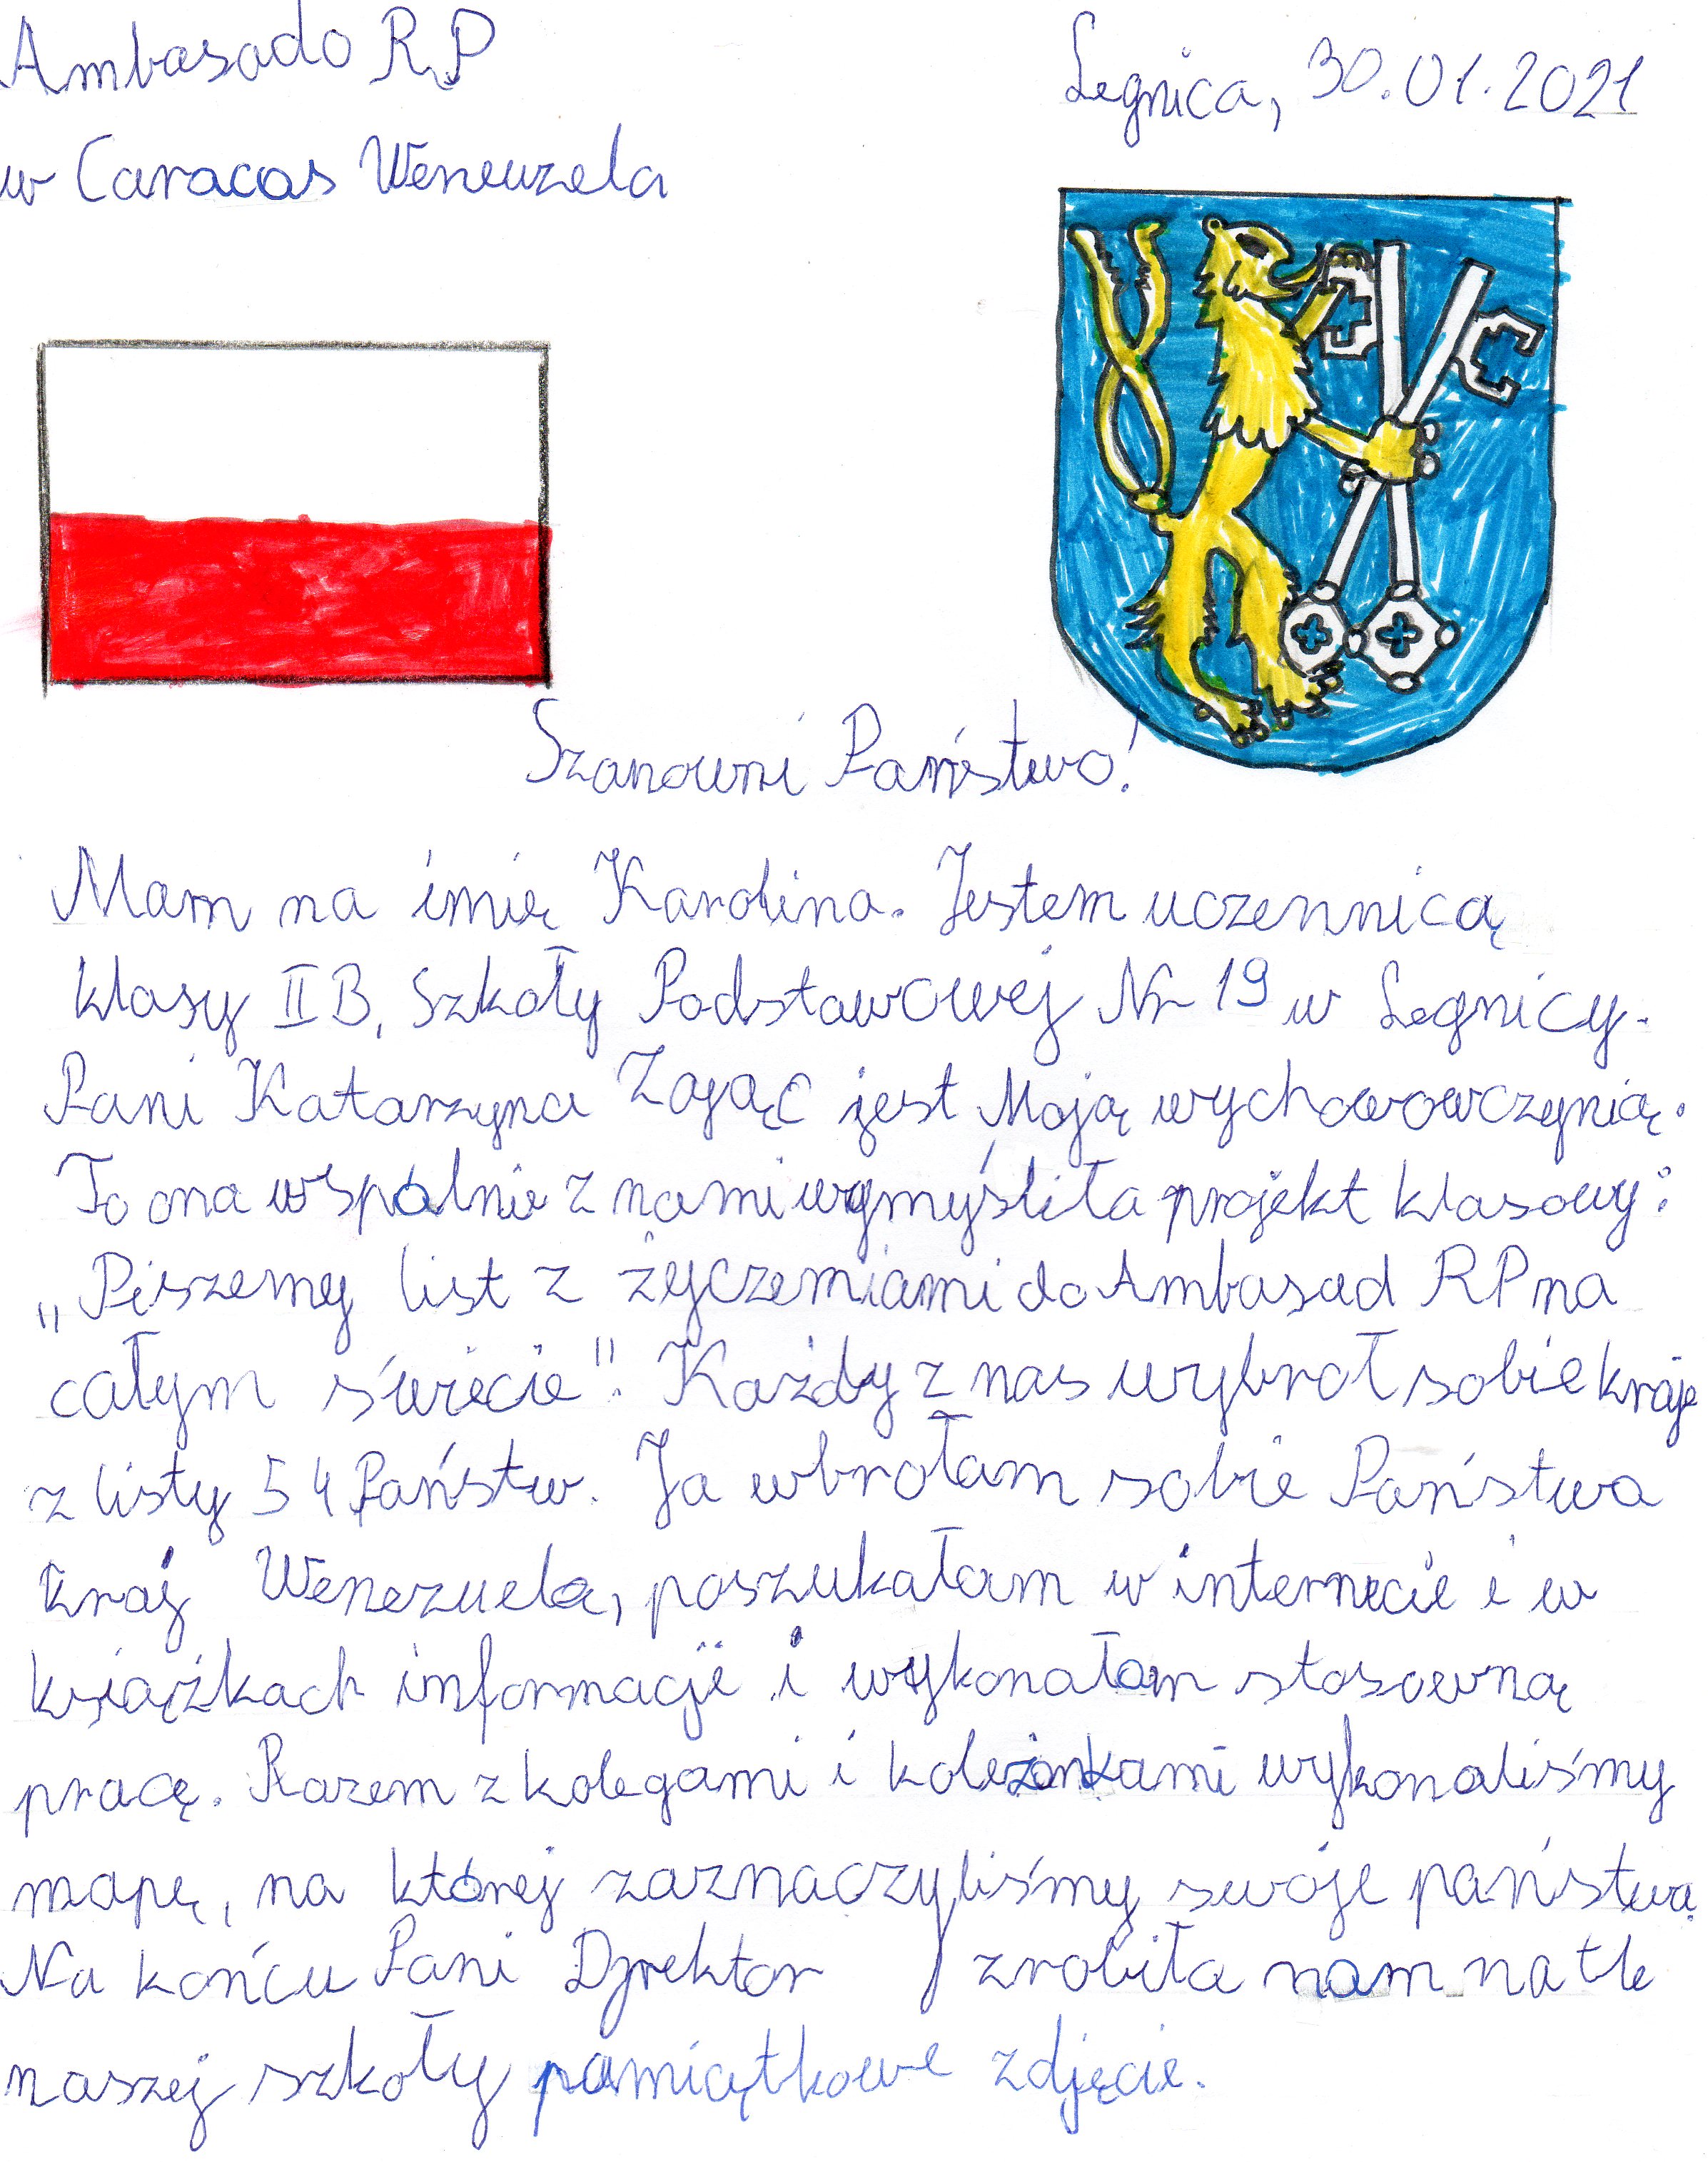 Ambasado RP
Legnica, 30.01.2021
w Caracas Weneuzela
Szanowni Państwo!
Mam na imię Karolina. Jestem uczennicą
klasy II B, Szkoły Podstawowej Nr 19 w Legnicy.
Pani Katarzyna Zając jest Moją wychowowczynią.
To ona wspólnie z nami wymyśliła projekt klasowy:
„Piszemy list z życzemiami do Ambasad RP na
całym świecie". Każdy z nas wybrał sobie kraje
z listy 54 Państw. Ja wbrałam sobie Państwa
kraj Wenezuela, poszukałam w internecie i w
książkach informacje i wykonałam stosowną
pracę. Razem z kolegami i koleżankami wykonaliśmy
mapę, na której zaznaczyliśmy swoje państwa.
Na końcu Pani Dyrektor zrobiła nam na tle
naszej szkoły pamiątkowe zdjęcie.